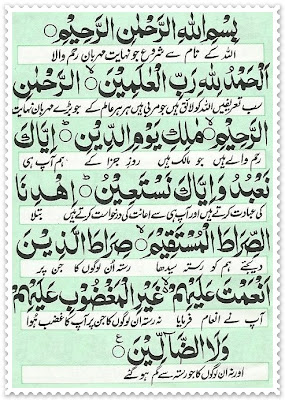 بِسْمِ اللهِ الرَّحْمٰنِ الرَّحِيْمِ
اللہ کے نام سے شروع جو نہایت مہربان رحم والا
اَلْحَمْدُ لِلّٰهِ رَبِّ الْعٰلَمِيْنَ ۙ الرَّحْمٰنِ
سب تعریفیں اللہ کو لائق ہیں جو مربی ہیں ہر ہر عالم کے جو بڑے مہربان نہایت
الرَّحِيْمِ ۙ مٰلِكِ يَوْمِ الدِّيْنِ ۭ اِيَّاكَ
رحم والے ہیں جو مالک ہیں روز جزا کے ہم آپ ہی
نَعْبُدُ وَ اِيَّاكَ نَسْتَعِيْنُ ۭ اِهْدِنَا
کی عبادت کرتے ہیں اور آپ ہی سے اعانت کی درخواست کرتے ہیں بتلا
الصِّرَاطَ الْمُسْتَقِيْمَ ۙ صِرَاطَ الَّذِيْنَ
دیجئے ہم کو رستہ سیدھا رستہ ان لوگوں کا جن پر
اَنْعَمْتَ عَلَيْهِمْ ۙ غَيْرِ الْمَغْضُوْبِ عَلَيْهِمْ
آپ نے انعام فرمایا نہ رستہ ان لوگوں کا جن پر آپ کا غضب ہوا
وَلَا الضَّآلِّيْنَ
اور نہ ان لوگوں کا جو رستہ سے گم ہو گئے